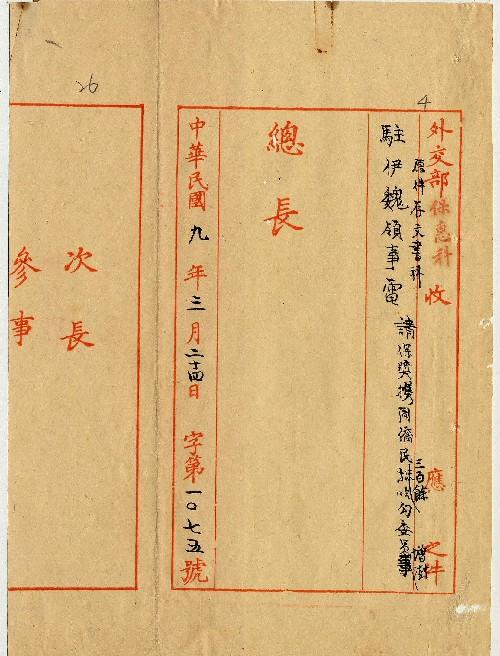 26
4
外交部保惠科收 應 之件
原件存文書科
駐伊魏領事電 請保獎攜同僑民
三百餘
總長
中華民國九年三月二十四日 字第一〇七五號
次長
參事